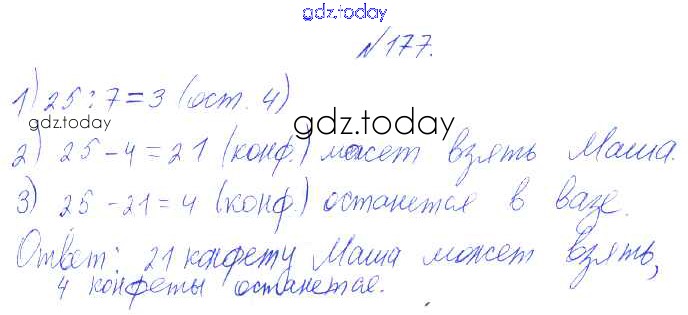 gdz.today
№177.
1) 25 : 7 = 3 (ост. 4)
gdz.today
gdz.today
2) 25 - 4 = 21 (конф.) может взять Маша.
3) 25 - 21 = 4 (конф.) останется в вазе.
Ответ: 21 конфету Маша может взять,
4 конфеты останется.